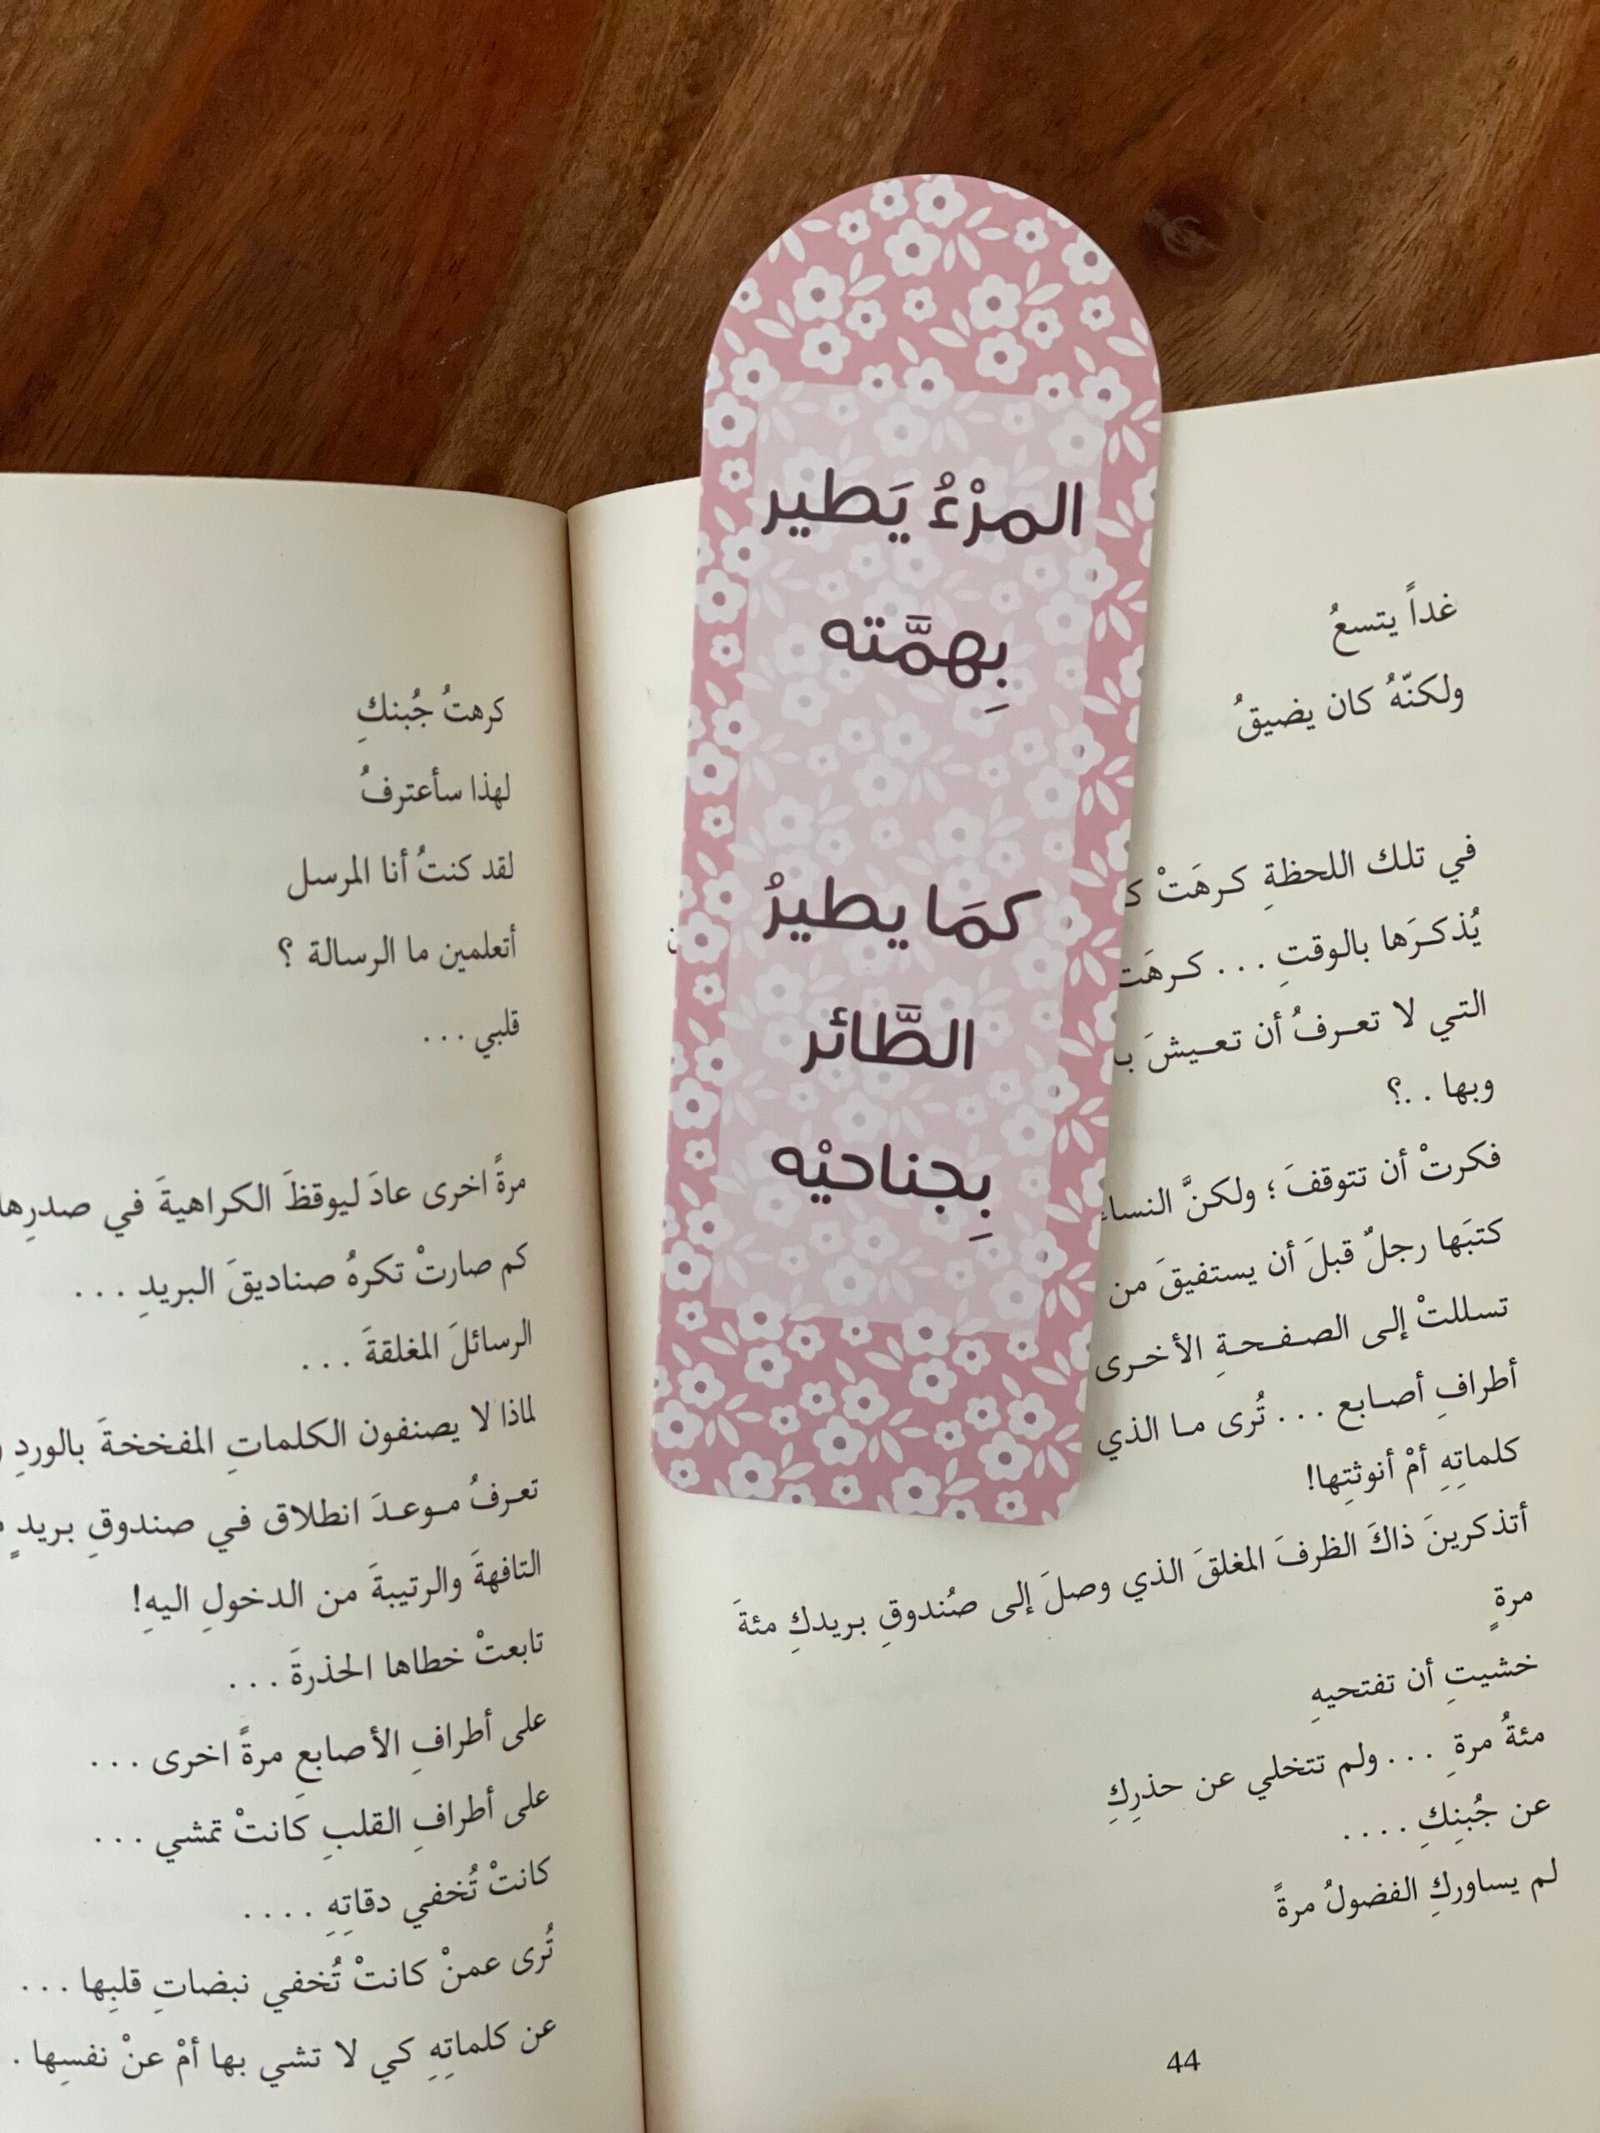 المرْءُ يَطير
بِهمَّته
كمَا يطيرُ
الطَّائر
بِجناحيْه
غداً يتسعُ
ولكنّهُ كان يضيقُ
في تلك اللحظةِ كرهَتْ
يُذكرَها بالوقتِ . . . كرهَت
التي لا تعرفُ أن تعيشَ
وبها . .؟
فكرتْ أن تتوقفَ ؛ ولكنَّ النساء
كتبَها رجلٌ قبلَ أن يستفيقَ من
تسللتْ إلى الصفحةِ الأخرى
أطرافِ أصابع . . . تُرى ما الذي
كلماتِهِ أمْ أنوثتِها!
أتذكرينَ ذاكَ الظرفَ المغلقَ الذي وصلَ إلى صُندوقِ بريدكِ مئةَ
مرةٍ
خشيتِ أن تفتحيهِ
مئةُ مرةِ . . . ولم تتخلي عن حذرِكِ
عن جُبنِكِ . . . .
لم يساوركِ الفضولُ مرةً
44
كرهتُ جُبنكِ
لهذا سأعترفُ
لقد كنتُ أنا المرسل
أتعلمين ما الرسالة ؟
قلبي . . .
مرةً اخرى عادَ ليوقظَ الكراهيةَ في صدرِها
كم صارتْ تكرهُ صناديقَ البريدِ . . .
الرسائلَ المغلقةَ . . .
لماذا لا يصنفون الكلماتِ المفخخةَ بالوردِ
تعرفُ موعدَ انطلاق في صندوقِ بريدٍ
التافهةَ والرتيبةَ من الدخولِ اليهِ!
تابعتْ خطاها الحذرةَ . . .
على أطرافِ الأصابعِ مرةً اخرى . . .
على أطرافِ القلبِ كانتْ تمشي . . .
كانتْ تُخفي دقاتِهِ . . . .
تُرى عمنْ كانتْ تُخفي نبضاتِ قلبِها . . .
عن كلماتِهِ كي لا تشي بها أمْ عنْ نفسِها .